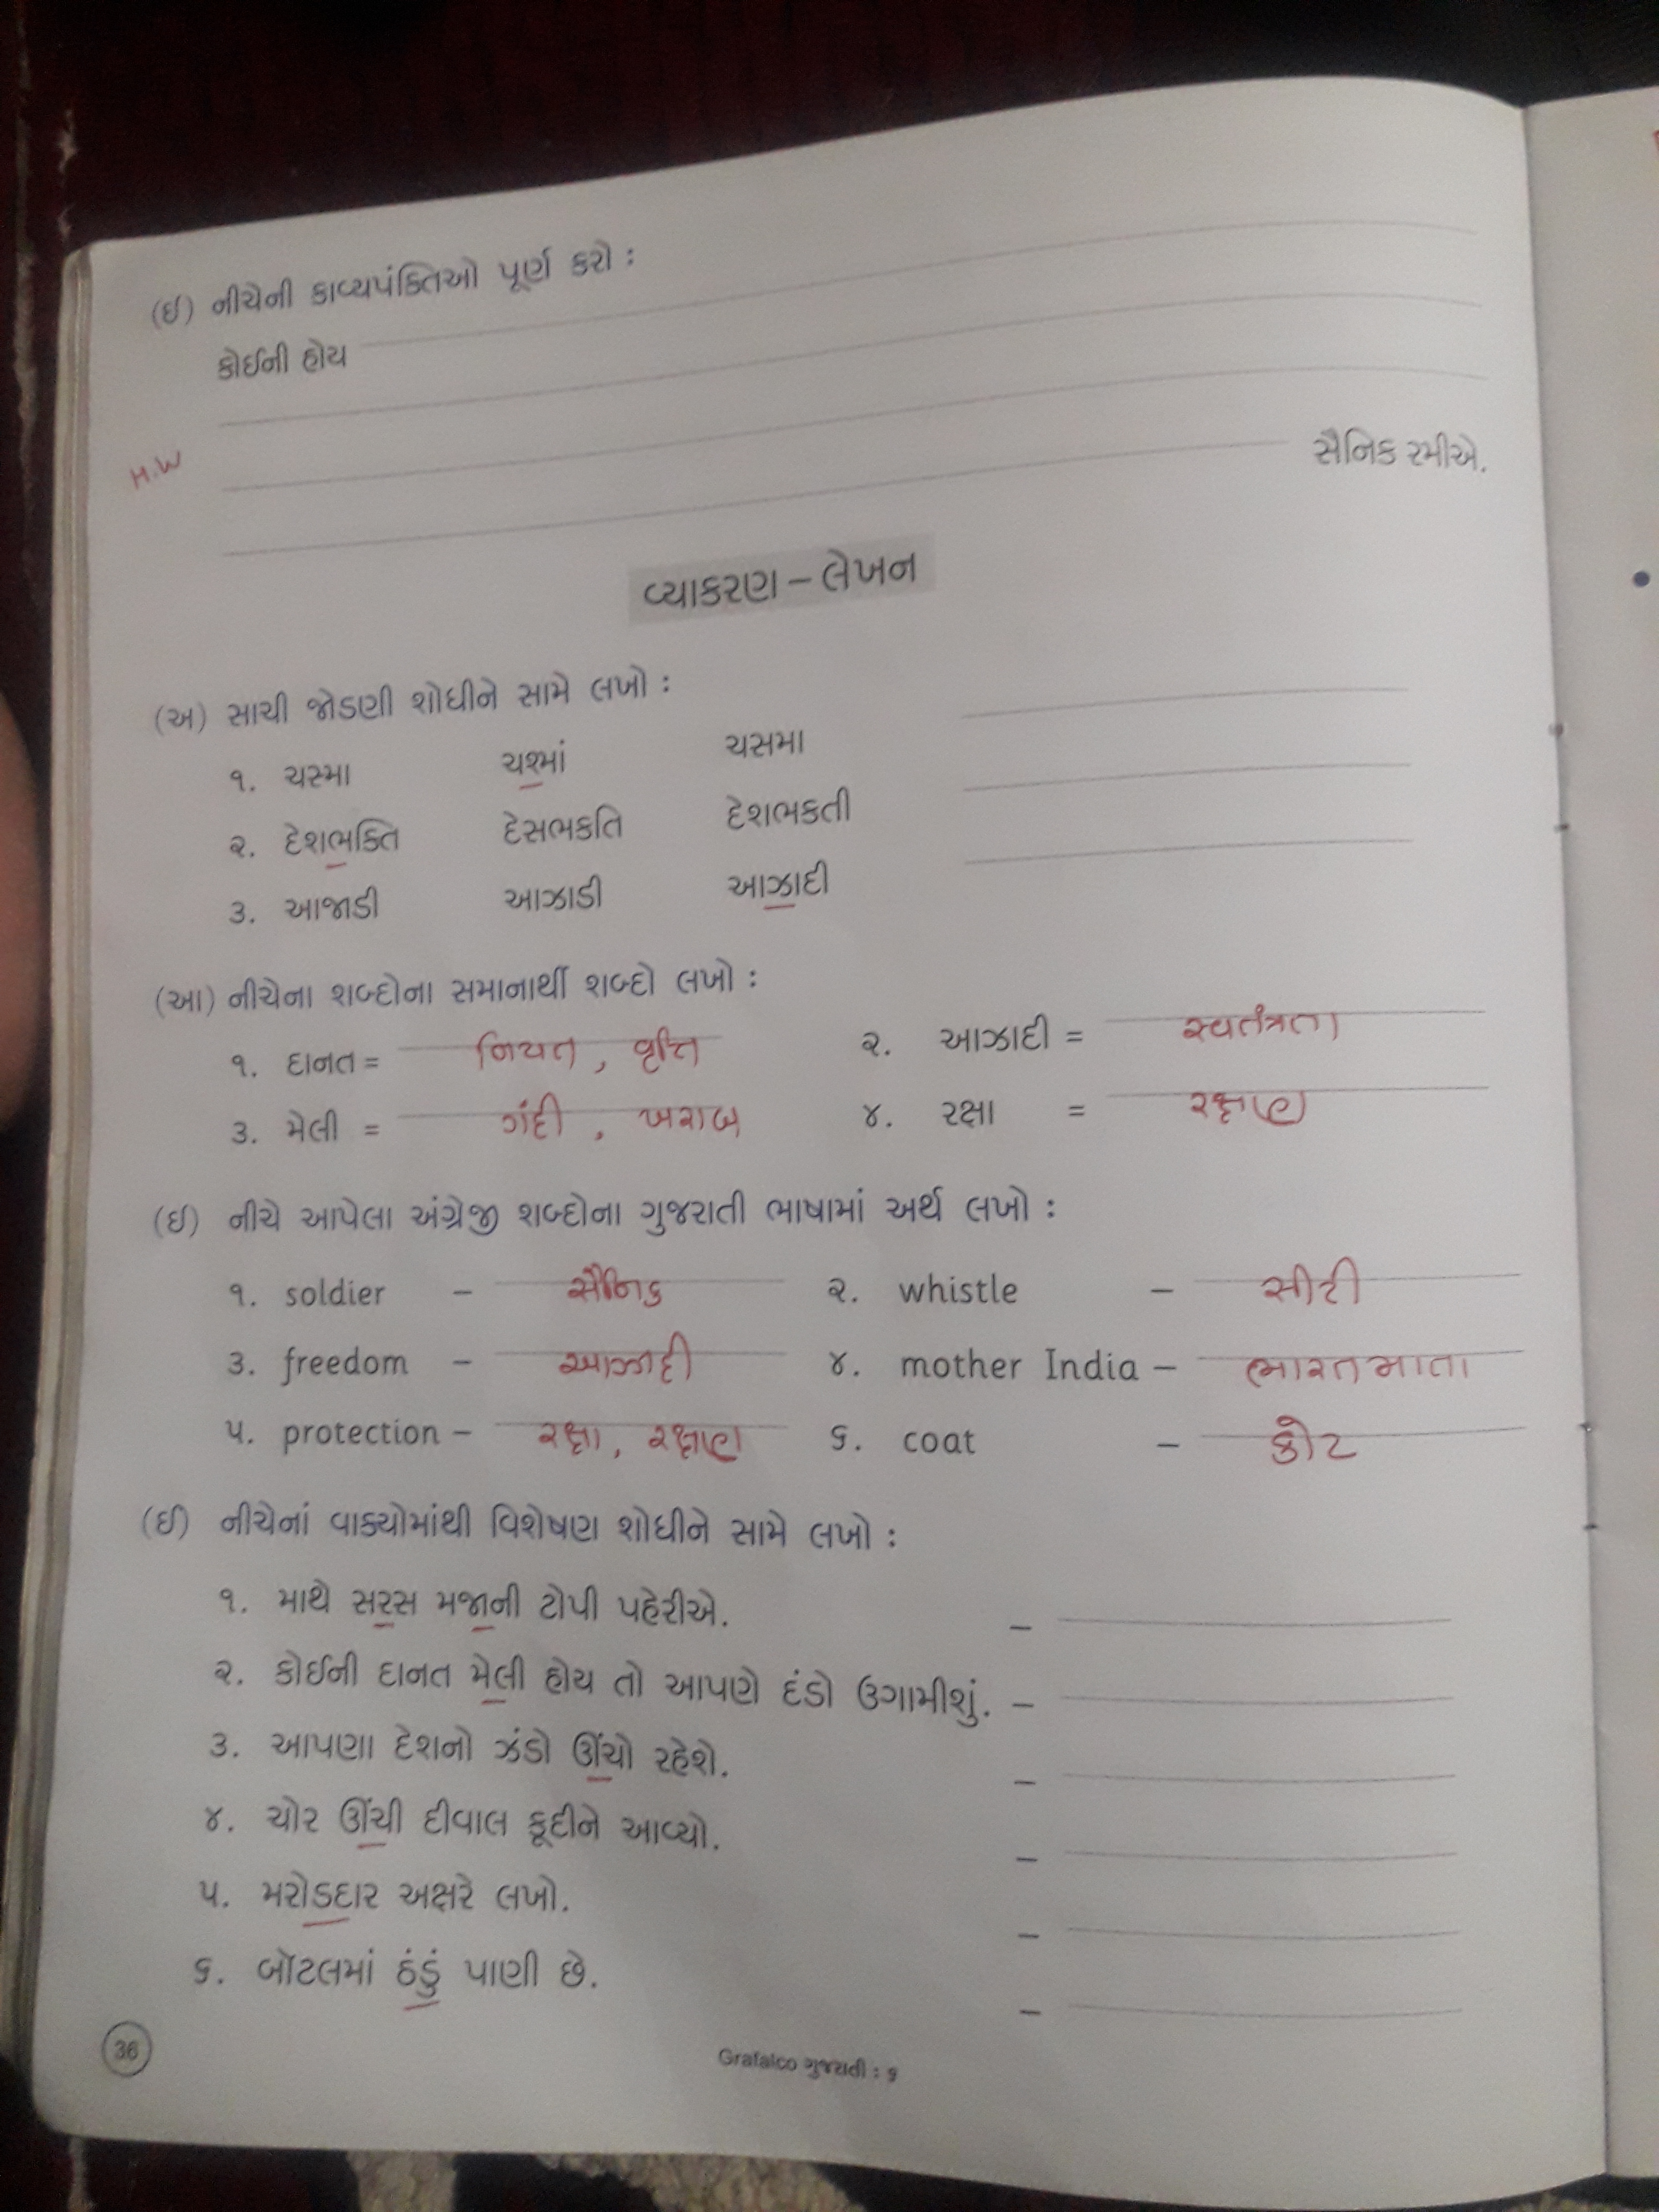 (ઈ) નીચેની કાવ્યપંક્તિઓ પૂર્ણ કરો :
કોઈની હોય
સૈનિક રમીએ.
H.W
વ્યાકરણ – લેખન
(અ) સાચી જોડણી શોધીને સામે લખો :
૧. ચસ્મા ચશ્માં ચસમા
૨. દેશભક્તિ દેસભકતિ દેશભકતી
૩. આજાડી આઝાડી આઝાદી
(આ) નીચેના શબ્દોના સમાનાર્થી શબ્દો લખો :
૧. દાનત = નિયત, વૃત્તિ ૨. આઝાદી = સ્વતંત્રતા
૩. મેલી = ગંદી, ખરાબ ૪. રક્ષા = રક્ષણ
(ઈ) નીચે આપેલા અંગ્રેજી શબ્દોના ગુજરાતી ભાષામાં અર્થ લખો :
૧. soldier – સૈનિક ૨. whistle – સીટી
૩. freedom – આઝાદી ૪. mother India – ભારતમાતા
૫. protection – રક્ષા, રક્ષણ ૬. coat – કોટ
(ઈ) નીચેનાં વાક્યોમાંથી વિશેષણ શોધીને સામે લખો :
૧. માથે સરસ મજાની ટોપી પહેરીએ. –
૨. કોઈની દાનત મેલી હોય તો આપણે દંડો ઉગામીશું. –
૩. આપણા દેશનો ઝંડો ઊંચો રહેશે. –
૪. ચોર ઊંચી દીવાલ કૂદીને આવ્યો. –
૫. મરોડદાર અક્ષરે લખો. –
૬. બૉટલમાં ઠંડું પાણી છે. –
36
Grafalco ગુજરાતી : ૬